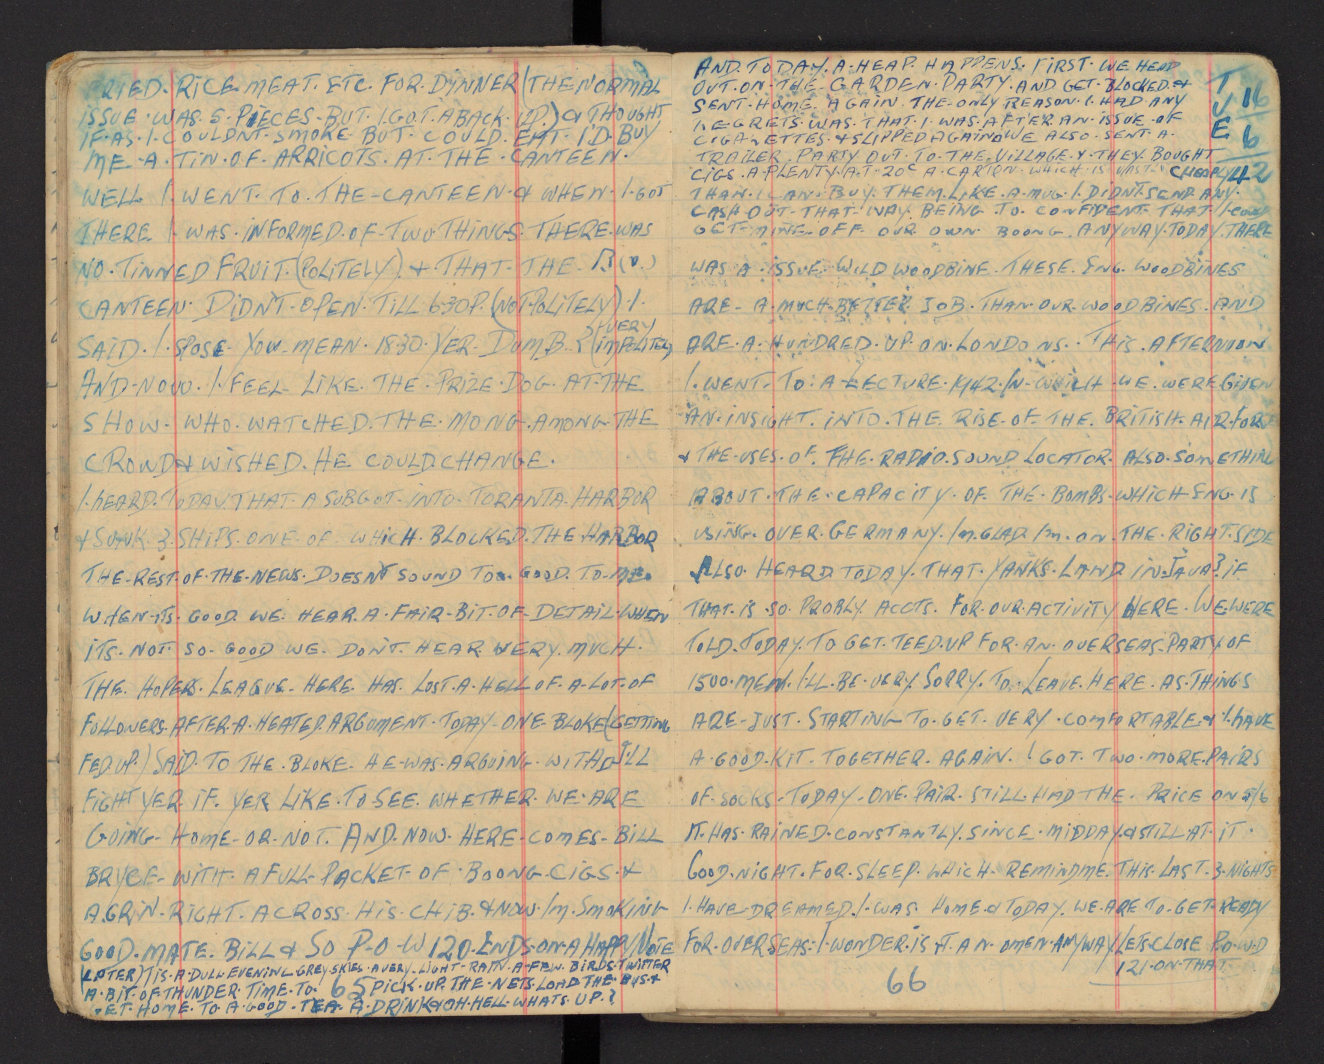 FRIED. RICE. MEAT. ETC. FOR. DYNNER (THE NORMAL
ISSUE. WAS. 5. PIECES. BUT. I. GOT. A BACK. UP.) & THOUGHT
IF. AS. I. COULDNT. SMOKE. BUT. COULD. EAT. I'D. BUY
ME. A. TIN. OF. APRICOTS. AT. THE. CANTEEN.
WELL I. WENT. TO. THE-CANTEEN. & WHEN. I. GOT
THERE I. WAS. INFORMED. OF. TWO THINGS. THERE. WAS
NO. TINNED FRUIT. (POLITELY) & THAT. THE. B (.)
CANTEEN. DIDN'T. OPEN. TILL 6.30P. (NOT POLITELY) I.
SAID. I. SPOSE. YOU. MEAN. 18.30. YER. DUMB. B (VERY
IMPOLITELY)
AND. NOW. I. FEEL. LIKE. THE. PRIZE. DOG. AT. THE
SHOW. WHO. WATCHED. THE. MONG. AMONG. THE
CROWD & WISHED. HE COULD. CHANGE.
I. HEARD. TODAY. THAT. A SUB GOT. INTO. TORANTA. HARBOR
& SUNK. 3. SHIPS. ONE. OF. WHICH. BLOCKED. THE. HARBOR
THE. REST. OF. THE. NEWS. DOESN'T SOUND TOO. GOOD. TO. ME.
WHEN. ITS. GOOD. WE. HEAR. A. FAIR. BIT. OF. DETAIL. WHEN
ITS. NOT. SO. GOOD WE. DON'T. HEAR VERY. MUCH.
THE. HOPERS. LEAGUE. HERE. HAS. LOST. A. HELL OF. A. LOT. OF
FOLLOWERS. AFTER. A. HEATED. ARGUMENT. TODAY. ONE. BLOKE (GETTING
FED. UP.) SAID. TO THE. BLOKE. HE. WAS. ARGUING. WITH. I'LL
FIGHT YER IF. YER LIKE. TO. SEE. WHETHER. WE. ARE
GOING. HOME. OR. NOT. AND. NOW. HERE. COMES. BILL
BRYCE. WITH. A FULL. PACKET. OF. BOONG. CIGS. &
A. GRIN. RIGHT. ACROSS. HIS. CHIB. & NOW. I'M. SMOKING
GOOD. MATE. BILL & SO P-O-W 120. ENDS. ON. A HAPPY NOTE
(LATER) TIS. A. DULL. EVENING. GREY. SKIES. A VERY. LIGHT. RAIN. A. FEW. BIRDS. TWITTER
A. BIT. OF. THUNDER. TIME. TO. PICK. UP. THE. NETS. LOAD. THE. BUS. &
GET. HOME. TO. A. GOOD. TEA. A. DRINK & OH. HELL. WHATS. UP.?
65
AND. TODAY. A. HEAP. HAPPENS. FIRST. WE HEAD
OUT. ON. THE. GARDEN. PARTY. AND GET. BLOCKED. &
SENT. HOME. AGAIN. THE. ONLY REASON. I. HAD. ANY
REGRETS. WAS. THAT. I. WAS. AFTER. AN. ISSUE. OF
CIGARETTES. & SLIPPED AGAIN. WE ALSO. SENT. A.
TRAILER. PARTY OUT. TO. THE. VILLAGE. & THEY. BOUGHT
CIGS. A PLENTY. AT. 20C A. CARTON. WHICH. IS. VASTLY CHEAPER
TUE
16
6
42
THAN. I. CAN. BUY. THEM. LIKE. A. MUG. I. DIDN'T. SEND. ANY.
CASH. OUT. THAT. WAY. BEING. TO. CONFIDENT. THAT. I. COULD
GET. MINE. OFF. OUR OWN. BOONG. ANYWAY. TODAY. THERE
WAS. A. ISSUE. WILD WOODBINE. THESE. ENG. WOODBINES
ARE. A. MUCH. BETTER JOB. THAN. OUR. WOODBINES. AND
ARE. A. HUNDRED. UP. ON. LONDONS. THIS. AFTERNOON
I. WENT. TO. A LECTURE. 1942. IN. WHICH. WE. WERE GIVEN
AN. INSIGHT. INTO. THE. RISE. OF. THE. BRITISH. AIR. FORCE
& THE. USES. OF. THE. RADIO. SOUND LOCATOR. ALSO. SOMETHING
ABOUT. THE. CAPACITY. OF. THE. BOMBS. WHICH ENG. IS
USING. OVER. GERMANY. I'M. GLAD. I'M. ON. THE. RIGHT. SIDE
ALSO. HEARD. TODAY. THAT. YANKS. LAND IN. JAVA? IF
THAT. IS. SO. PROBLY. ACCTS. FOR. OUR. ACTIVITY HERE. WE. WERE
TOLD. TODAY. TO GET. TEED. UP FOR. AN. OVERSEAS. PARTY OF
1500. MEN. I'LL. BE. VERY. SORRY. TO. LEAVE. HERE. AS. THINGS
ARE. JUST. STARTING. TO. GET. VERY. COMFORTABLE. & I. HAVE
A. GOOD. KIT. TOGETHER. AGAIN. I GOT. TWO. MORE. PAIRS
OF. SOCKS. TODAY. ONE. PAIR. STILL HAD THE. PRICE ON
IT. HAS. RAINED. CONSTANTLY. SINCE. MIDDAY. & STILL AT. IT.
GOOD. NIGHT. FOR. SLEEP. WHICH. REMINDME. THIS. LAST. 3. NIGHTS
I. HAVE. DREAMED. I. WAS HOME. & TODAY. WE ARE TO. GET. READY
FOR. OVERSEAS. I WONDER. IS IT. AN. OMEN. ANYWAY LETS. CLOSE P.O.W.D
121. ON. THAT.
66